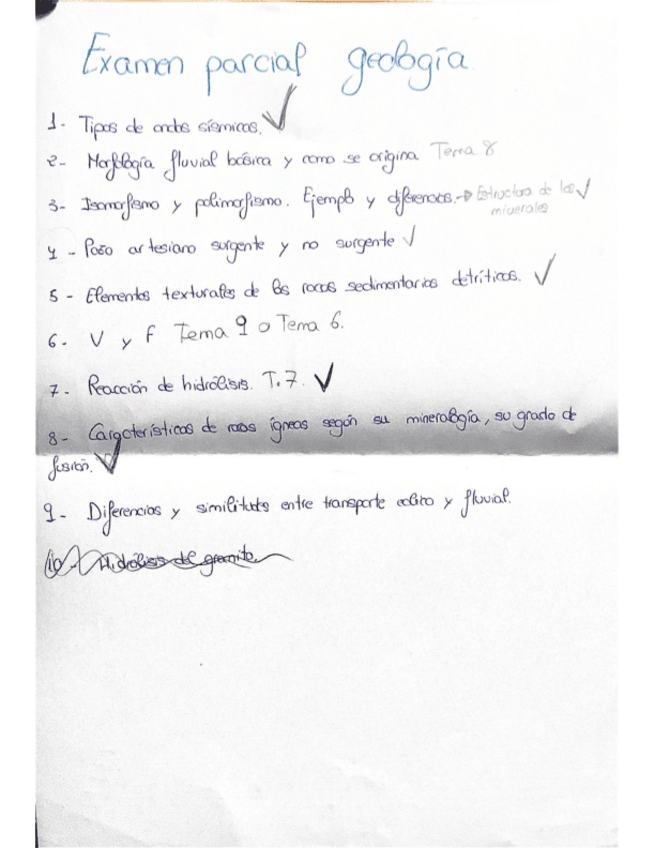 Examen parcial geología
1- Tipos de ondas sísmicas.
2- Morfología fluvial básica y como se origina Tema 8
3- Isomorfismo y polimorfismo. Ejemplo y diferencias. → Estructura de los
minerales
4 - Pozo artesiano surgente y no surgente
5 - Elementos texturales de las rocas sedimentarias detríticas.
6. V y f Tema 9 o Tema 6.
7- Reacción de hidrólisis. T.7.
8- Características de rocas ígneas según su mineralogía, su grado de
fusión.
9- Diferencias y similitudes entre transporte eólico y fluvial.
10 - Hidrólisis del granito.